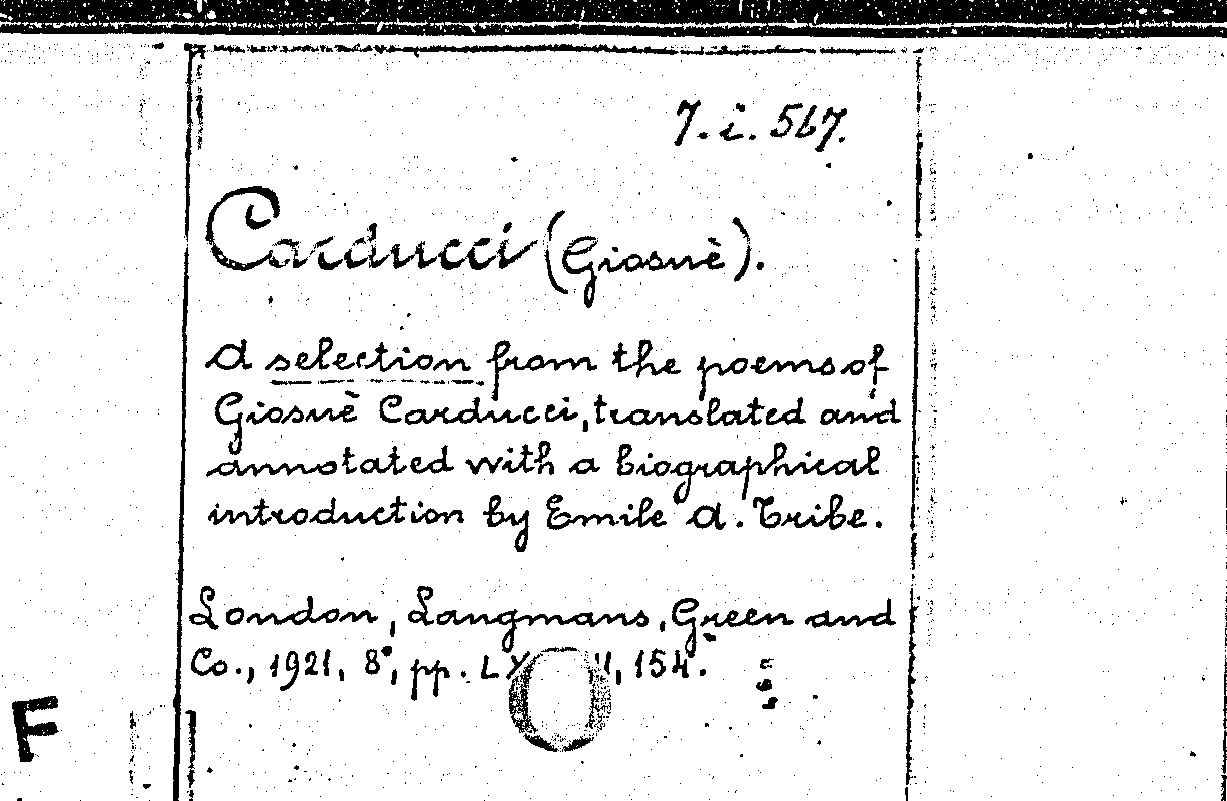 7. i. 567.
Carducci (Giosuè).
A selection from the poems of
Giosuè Carducci, translated and
annotated with a biographical
introduction by Emile A. Tribe.
London, Langmans, Green and
Co., 1921, 8°, pp. 154.
F